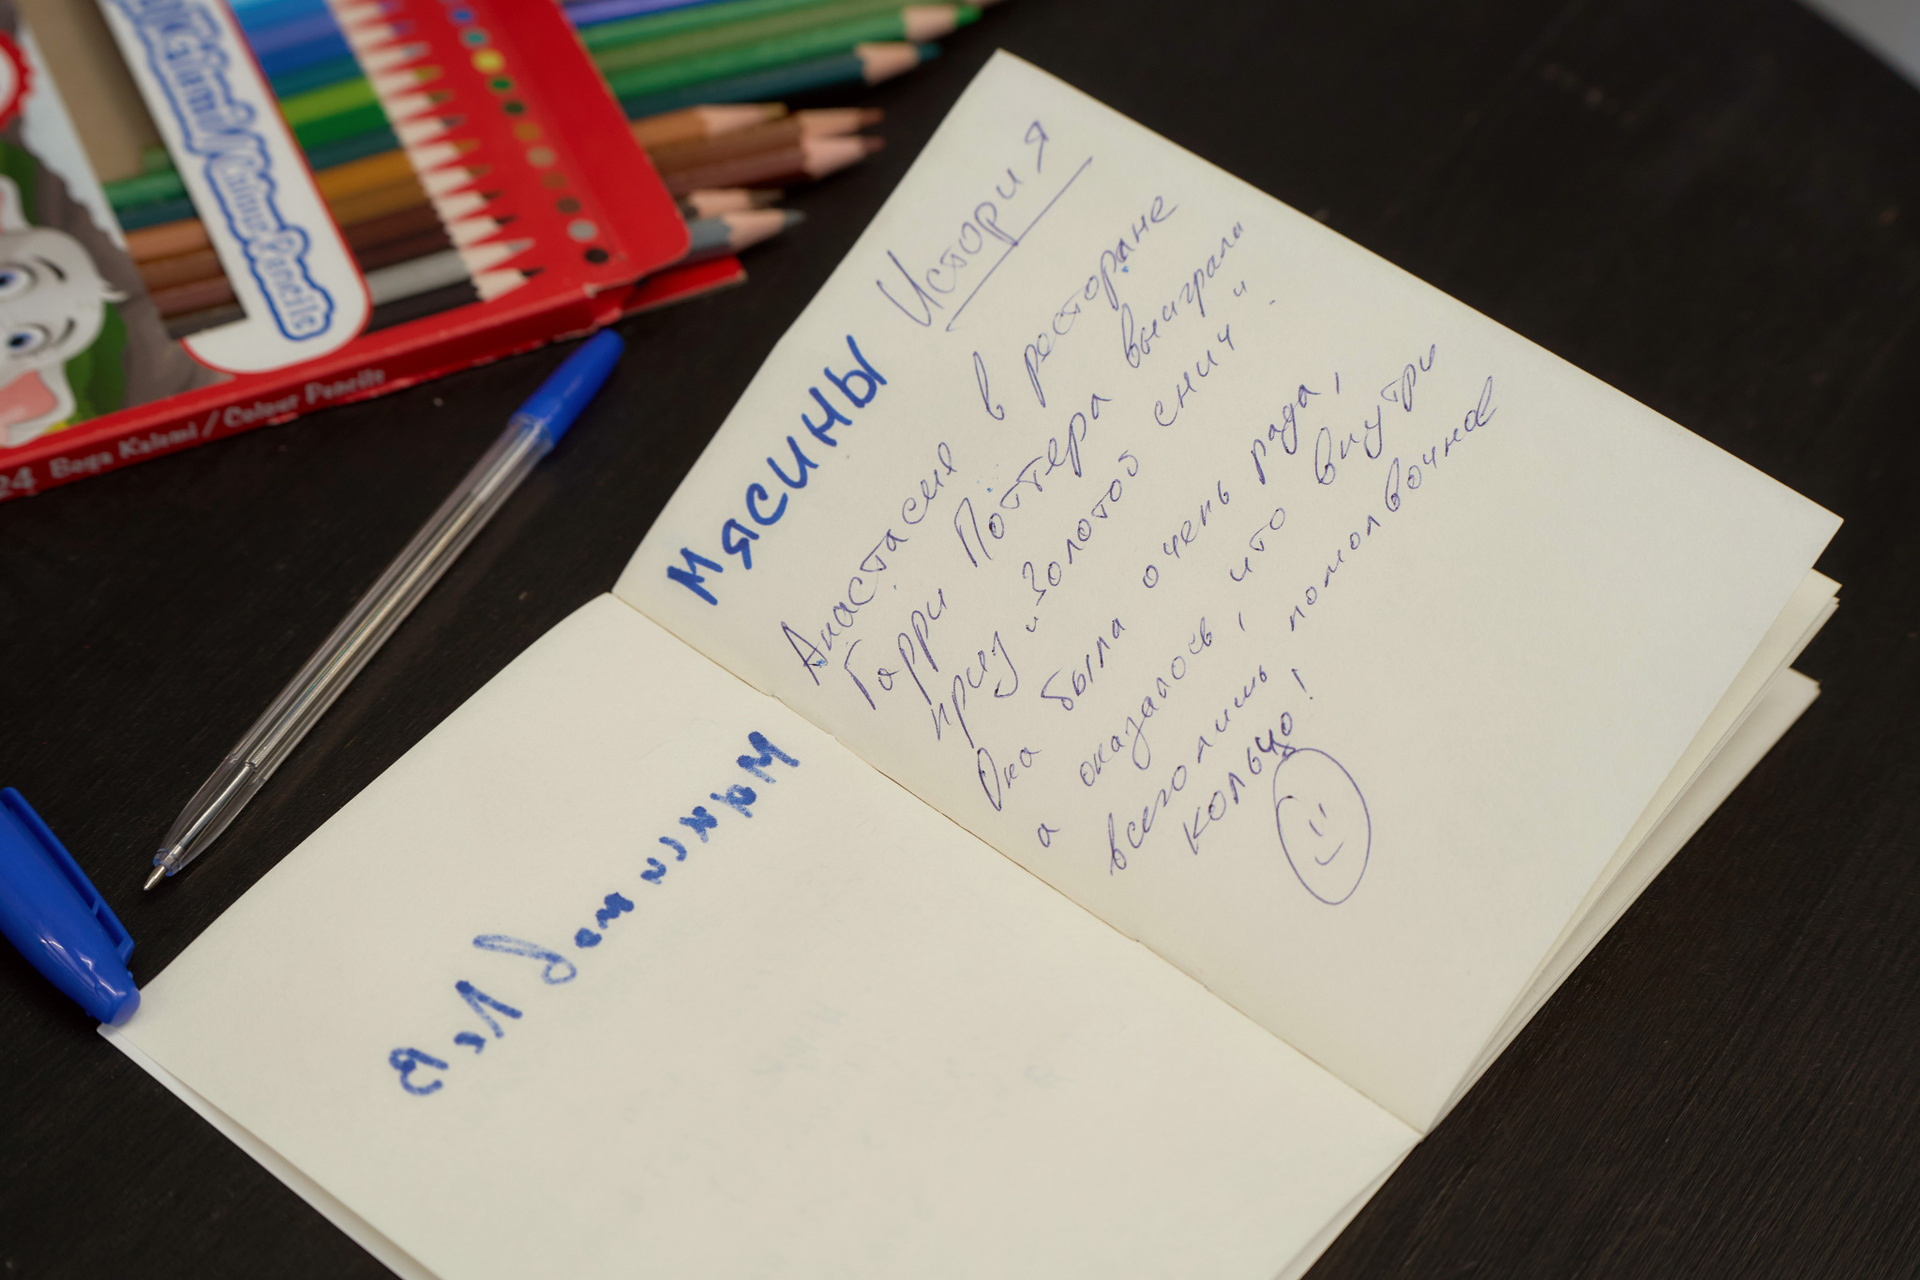 МЯСИНЫ
История
Анастасия в ресторане
Гарри Поттера выиграла
приз "Золотой снич".
Она была очень рада,
а оказалось, что внутри
всего лишь помолвочное
кольцо!
Boya Kalemi / Colour Pencils
24 Boya Kalemi / Colour Pencils